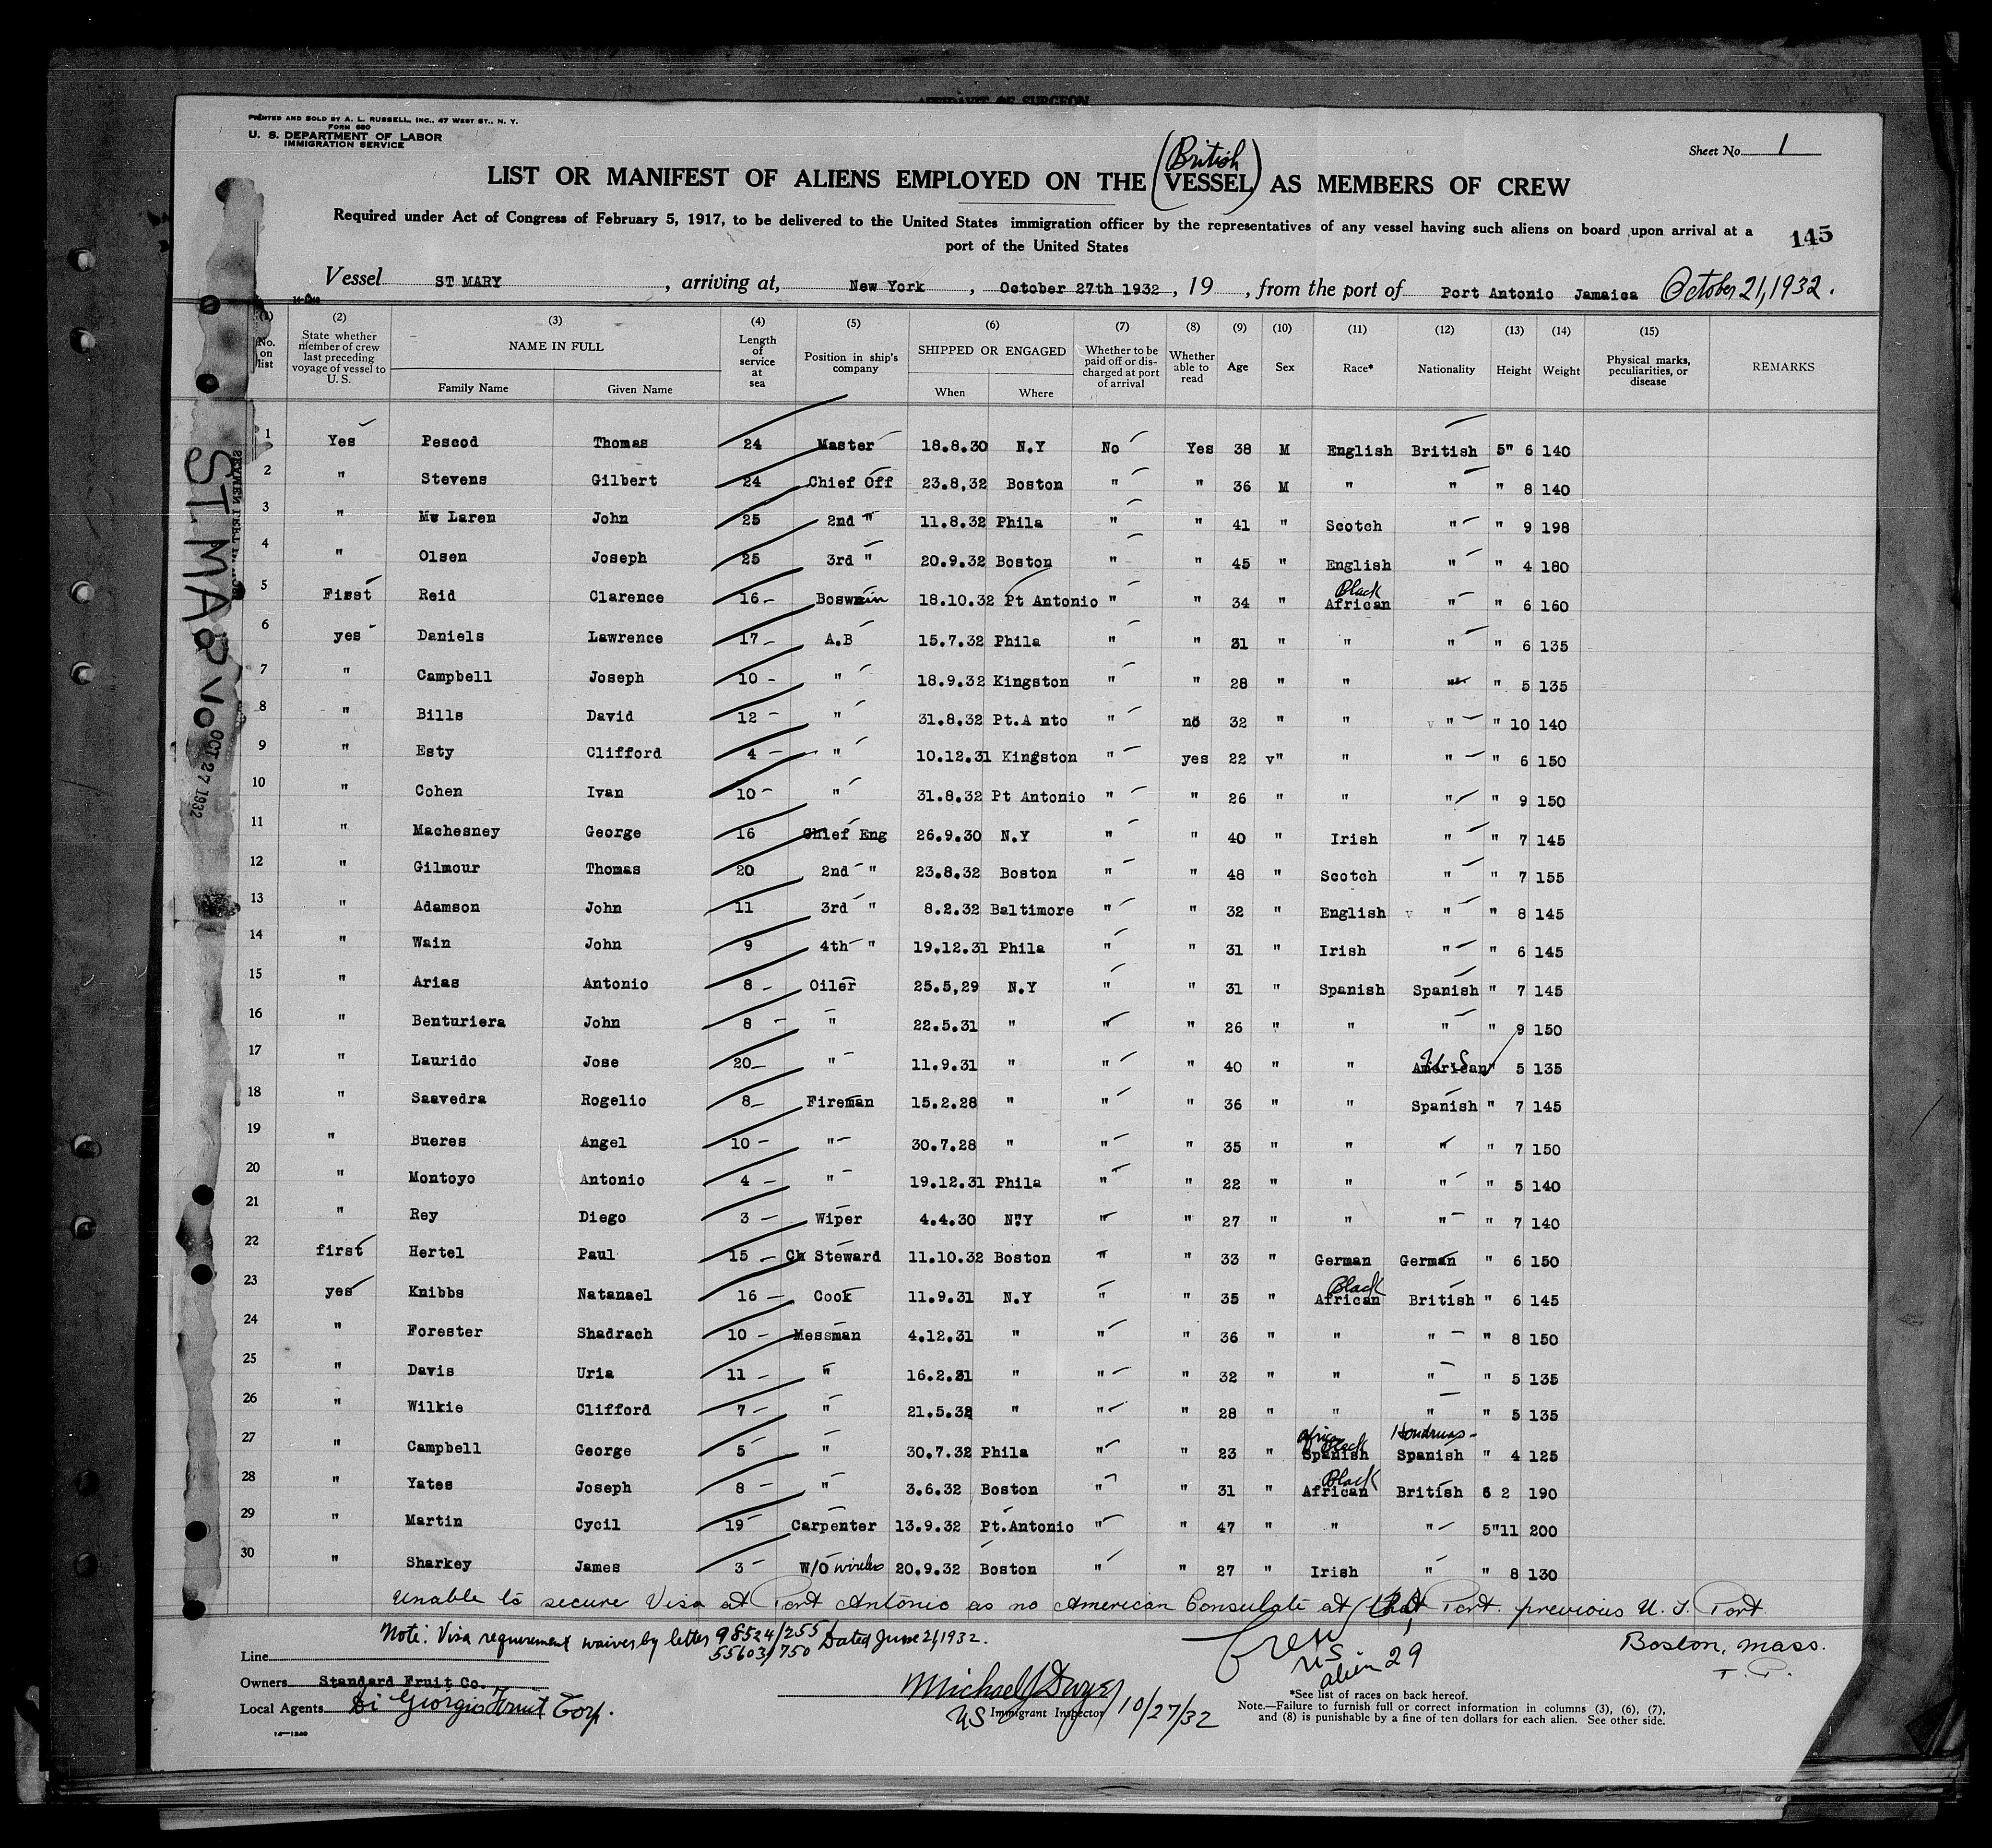 PRINTED AND SOLD BY A. L. RUSSELL, INC., 47 WEST ST., N. Y.
FORM 680
U. S. DEPARTMENT OF LABOR
IMMIGRATION SERVICE
Sheet No. 1
(British)
LIST OR MANIFEST OF ALIENS EMPLOYED ON THE VESSEL AS MEMBERS OF CREW
Required under Act of Congress of February 5, 1917, to be delivered to the United States immigration officer by the representatives of any vessel having such aliens on board upon arrival at a
port of the United States
145
Vessel ST MARY , arriving at, New York , October 27th 1932 , 19 , from the port of Port Antonio Jamaica October 21, 1932.
(1) No. on list (2) State whether member of crew last preceding voyage of vessel to U. S. (3) NAME IN FULL Family Name Given Name (4) Length of service at sea (5) Position in ship's company (6) SHIPPED OR ENGAGED When Where (7) Whether to be paid off or discharged at port of arrival (8) Whether able to read (9) Age (10) Sex (11) Race* (12) Nationality (13) Height (14) Weight (15) Physical marks, peculiarities, or disease REMARKS
1 Yes Pescod Thomas 24 Master 18.8.30 N.Y No Yes 38 M English British 5" 6 140
2 " Stevens Gilbert 24 Chief Off 23.8,32 Boston " " 36 M " " " 8 140
3 " Mc Laren John 25 2nd " 11.8.32 Phila " " 41 " Scotch " " 9 198
4 " Olsen Joseph 25 3rd " 20.9.32 Boston " " 45 " English " " 4 180
5 First Reid Clarence 16 Boswain 18.10.32 Pt Antonio " " 34 " Black African " " 6 160
6 yes Daniels Lawrence 17 A.B 15.7.32 Phila " " 31 " " " " 6 135
7 " Campbell Joseph 10 " 18.9.32 Kingston " " 28 " " " " 5 135
8 " Bills David 12 " 31.8.32 Pt.A nto " no 32 " " " " 10 140
9 " Esty Clifford 4 " 10.12.31 Kingston " yes 22 v" " " " 6 150
10 " Cohen Ivan 10 " 31.8.32 Pt Antonio " " 26 " " " " 9 150
11 " Machesney George 16 Chief Eng 26.9.30 N.Y " " 40 " Irish " " 7 145
12 " Gilmour Thomas 20 2nd " 23.8.32 Boston " " 48 " Scotch " " 7 155
13 " Adamson John 11 3rd " 8.2.32 Baltimore " " 32 " English " " 8 145
14 " Wain John 9 4th " 19.12.31 Phila " " 31 " Irish " " 6 145
15 " Arias Antonio 8 Oiler 25.5,29 N.Y " " 31 " Spanish Spanish " 7 145
16 " Benturiera John 8 " 22.5.31 " " " 26 " " " " 9 150
17 " Laurido Jose 20 " 11.9.31 " " " 40 " " U.S. American " 5 135
18 " Saavedra Rogelio 8 Fireman 15.2.28 " " " 36 " " Spanish " 7 145
19 " Bueres Angel 10 " 30.7.28 " " " 35 " " " " 7 150
20 " Montoyo Antonio 4 " 19.12.31 Phila " " 22 " " " " 5 140
21 " Rey Diego 3 Wiper 4.4.30 N.Y " " 27 " " " " 7 140
22 first Hertel Paul 15 Ch Steward 11.10.32 Boston " " 33 " German German " 6 150
23 yes Knibbs Natanael 16 Cook 11.9.31 N.Y " " 35 " Black African British " 6 145
24 " Forester Shadrach 10 Messman 4.12.31 " " " 36 " " " " 8 150
25 " Davis Uria 11 " 16.2.31 " " " 32 " " " " 5 135
26 " Wilkie Clifford 7 " 21.5.32 " " " 28 " " " " 5 135
27 " Campbell George 5 " 30.7.32 Phila " " 23 " Black Spanish Honduras Spanish " 4 125
28 " Yates Joseph 8 " 3.6.32 Boston " " 31 " Black African British 6 2 190
29 " Martin Cycil 19 Carpenter 13.9.32 Pt.Antonio " " 47 " " " 5"11 200
30 " Sharkey James 3 W/O wireless 20.9.32 Boston " " 27 " Irish " " 8 130
Unable to secure Visa at Port Antonio as no American Consulate at that Port. previous U. S. Port
Boston, Mass.
Note: Visa requirement waiver by letter 98524/255
55603/750 Dated June 21, 1932.
Crew
US 1
alien 29
Line
Owners Standard Fruit Co.
Local Agents Di Giorgio Fruit Corp.
Michael J Dwyer 10/27/32
US Immigrant Inspector
*See list of races on back hereof.
Note.—Failure to furnish full or correct information in columns (3), (6), (7),
and (8) is punishable by a fine of ten dollars for each alien. See other side.
ST. MARY
OCT 27 1932